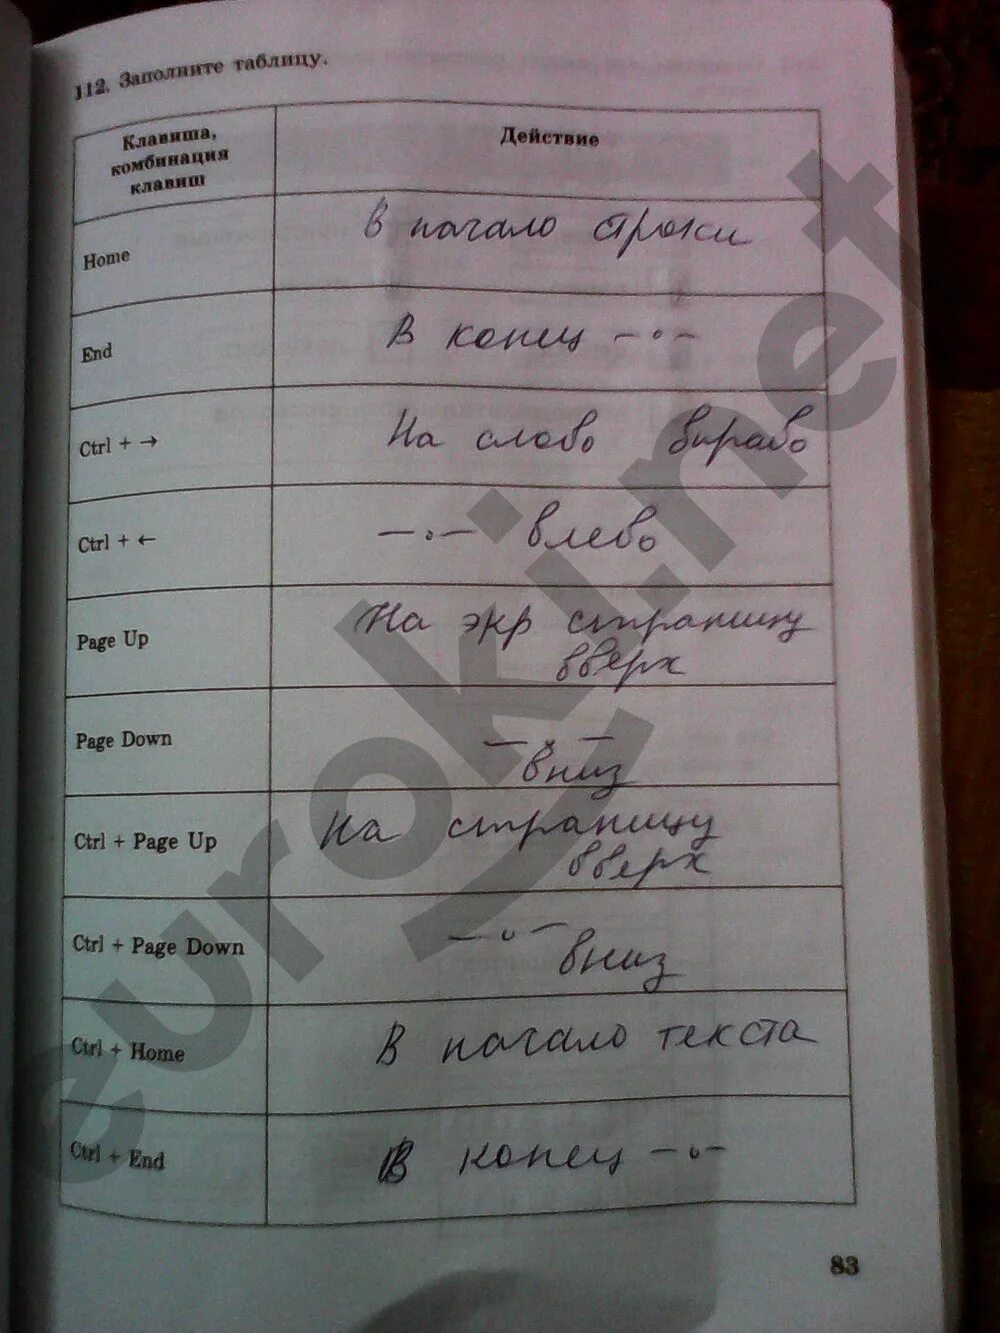 112. Заполните таблицу.
Клавиша,
комбинация
клавиш
Действие
Home
В начало строки
End
В конец —〃—
Ctrl + →
На слово вправо
Ctrl + ←
—〃— влево
Page Up
На экр страницу
вверх
Page Down
—〃—
вниз
Ctrl + Page Up
На страницу
вверх
Ctrl + Page Down
—〃—
вниз
Ctrl + Home
В начало текста
Ctrl + End
В конец —〃—
83
euroki.net